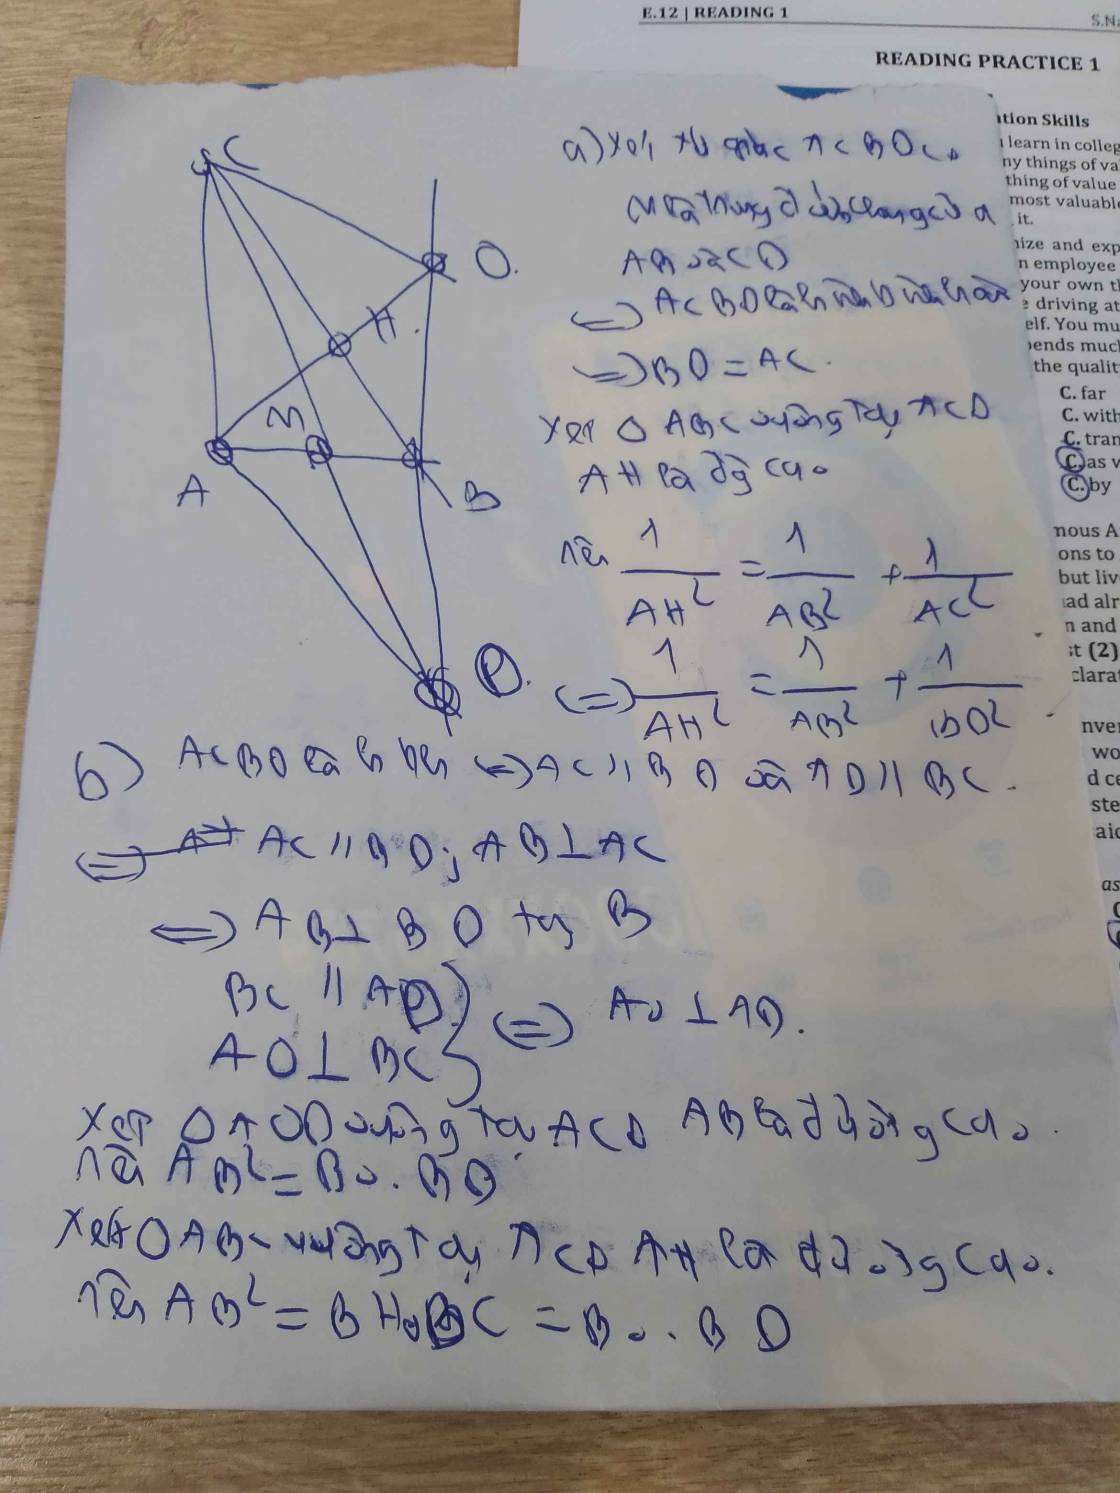 E.12 | READING 1
READING PRACTICE 1
tion Skills
learn in colleg
ny things of va
thing of value
most valuable
it.
nize and exp
n employee
your own th
driving at
elf. You mu
ends much
the quality
C. far
C. with
C. tran
C. as v
C. by
nous A
ons to
but live
ad alr
n and
t (2)
clarat
nve
wo
d ce
ste
aid
as
C
O.
H.
M
A
B
D.
a) Xét tứ giác ACBD có
M là trung điểm chung của
AB và CD
<=> ACBD là hình bình hành
=> BD = AC.
Xét Δ ABC vuông tại A có
AH là đg cao
nên 1/AH² = 1/AB² + 1/AC²
<=> 1/AH² = 1/AB² + 1/BD²
b) ACBD là hbh <=> AC // BD và AD // BC.
<=> AC // BD; AB ⊥ AC
<=> AB ⊥ BD tại B
BC // AD
AO ⊥ BC } <=> AO ⊥ AD.
Xét Δ AOD vuông tại A có AB là đường cao.
nên AB² = BO . BD
Xét Δ ABC vuông tại A có AH là đường cao.
nên AB² = BH . BC = BO . BD